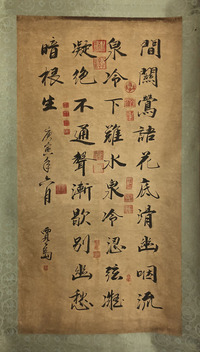 間關鶯語花底滑幽咽流
泉冷下難水泉冷忍弦凝
凝絶不通聲漸歇別幽愁
暗根生
庚寅年六月
賈島